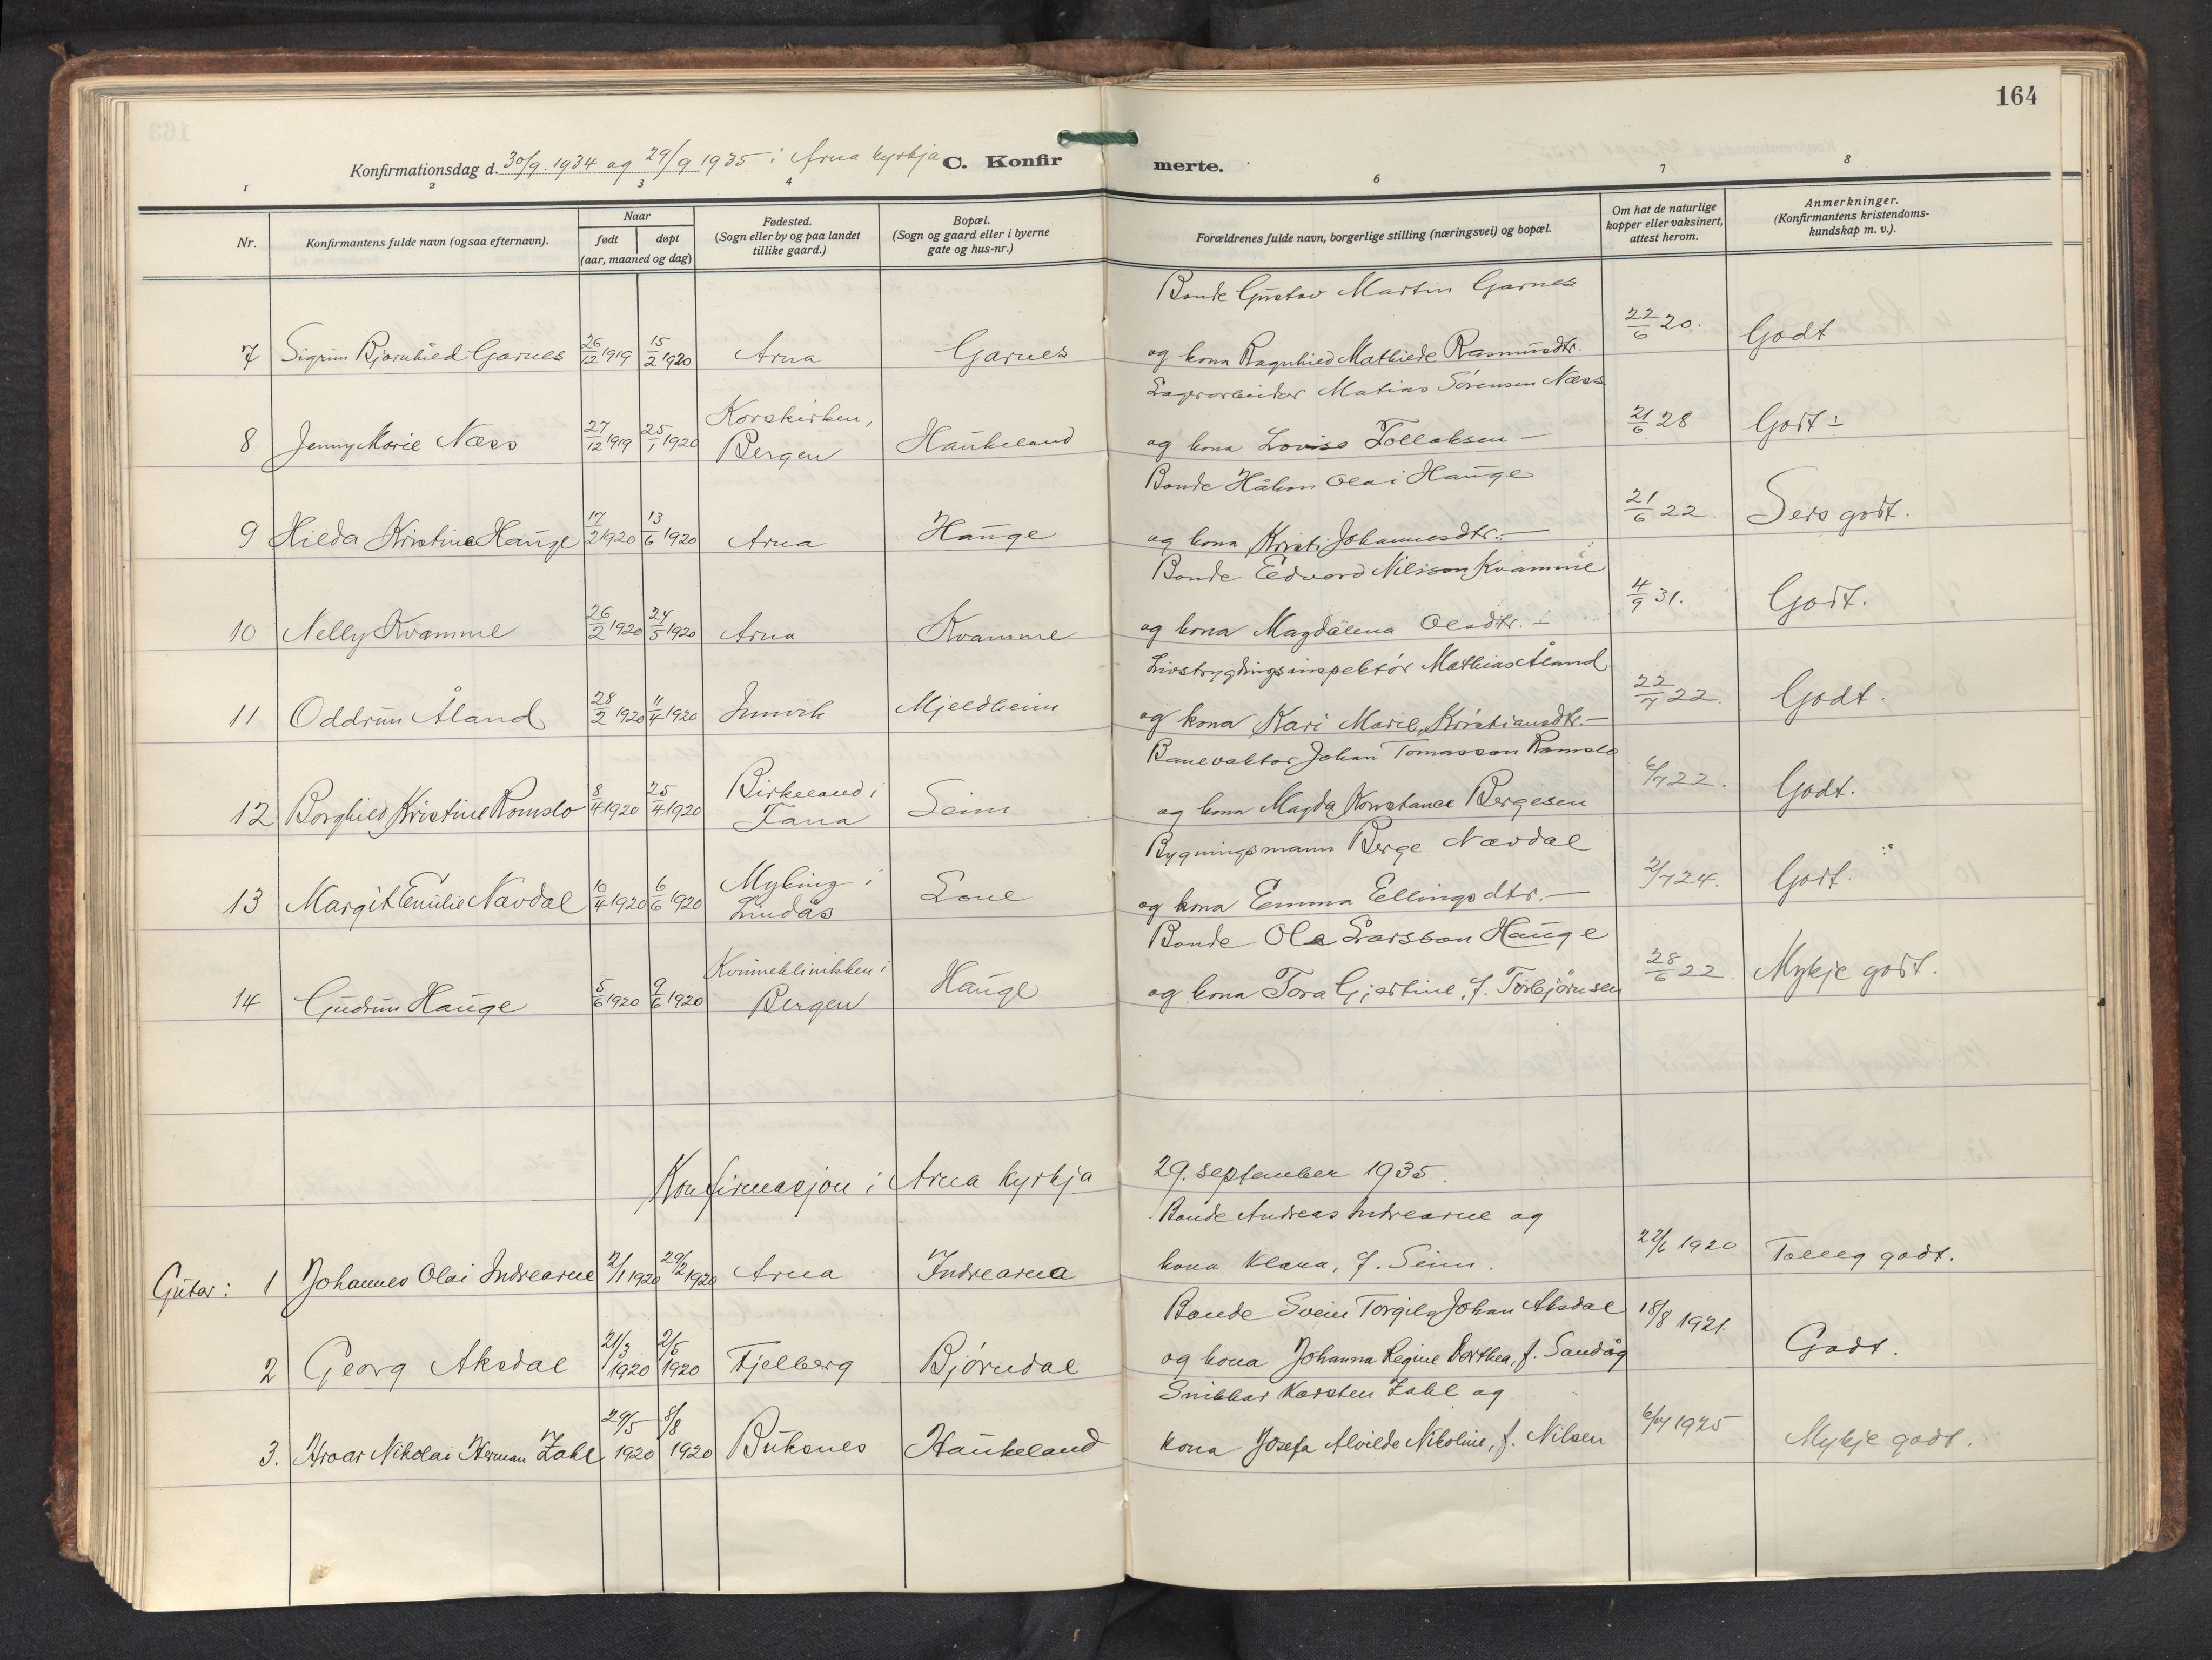 164
Konfirmationsdag d. 30/9. 1934 og 29/9 1935 i Arna kyrkja C. Konfirmerte.
1 2 3 4 6 7 8
Nr. Konfirmantens fulde navn (ogsaa efternavn). Naar født døpt (aar, maaned og dag) Fødested. (Sogn eller by og paa landet tillike gaard.) Bopæl. (Sogn og gaard eller i byerne gate og hus-nr.) Forældrenes fulde navn, borgerlige stilling (næringsvei) og bopæl. Om hat de naturlige kopper eller vaksinert, attest herom. Anmerkninger. (Konfirmantens kristendomskundskap m. v.).
Bonde Gustav Martin Garnes
7 Sigrun Bjørnhild Garnes 26/12 1919 15/2 1920 Arna Garnes og kona Ragnhild Mathilde Rasmusdtr. 22/6 20. Godt
Lagerarbeidar Matias Sörensen Næss
8 Jenny Marie Næss 27/12 1919 25/1 1920 Korskirken, Bergen Haukeland og kona Lovise Tollaksen — 21/6 28 Godt
Bonde Håkon Olai Hauge
9 Hilda Kristine Hauge 17/2 1920 13/6 1920 Arna Hauge og kona Kristi Johannesdtr. — 21/6 22. Sers godt.
Bonde Edvard Nilsson Kvamme
10 Nelly Kvamme 26/2 1920 24/5 1920 Arna Kvamme og kona Magdalena Olsdtr. 4/9 31. Godt.
Livstrygdingsinspektør Mathias Åland
11 Oddrun Åland 28/2 1920 11/4 1920 Innvik Mjeldheim og kona Kari Marie Kristiansdtr. — 22/7 22. Godt.
Banevaktar Johan Tomasson Romslo
12 Borghild Kristine Romslo 8/4 1920 25/4 1920 Birkeland i Fana Seim og kona Magda Konstance Bergesen 6/7 22. Godt.
Bygningsmann Berge Nævdal
13 Margit Emilie Nævdal 10/4 1920 6/6 1920 Myking i Lindås Lone og kona Emma Ellingsdtr. — 2/7 24. Godt.
Bonde Ola Larsson Hauge
14 Gudrun Hauge 5/6 1920 9/6 1920 Kvinneklinikken i Bergen Hauge og kona Tora Gjertine, f. Torbjørnsen 28/6 22. Mykje godt.
Konfirmasjon i Arna kyrkja 29. september 1935.
Bonde Andreas Indrearne og
Gutar: 1 Johannes Olai Indrearne 2/1 1920 29/2 1920 Arna Indrearna kona Klara, f. Seim. 22/6 1920 Tolleg godt.
Bonde Svein Torgils Johan Aksdal
2 Georg Aksdal 21/3 1920 2/5 1920 Fjelberg Bjørndal og kona Johanna Regine Dorthea, f. Sandåg 18/8 1921. Godt.
Snikkar Karsten Zahl og
3. Hroar Nikolai Herman Zahl 29/5 1920 8/8 1920 Buksnes Haukeland kona Josefa Alvilde Nikoline, f. Nilsen 6/7 1925 Mykje godt.